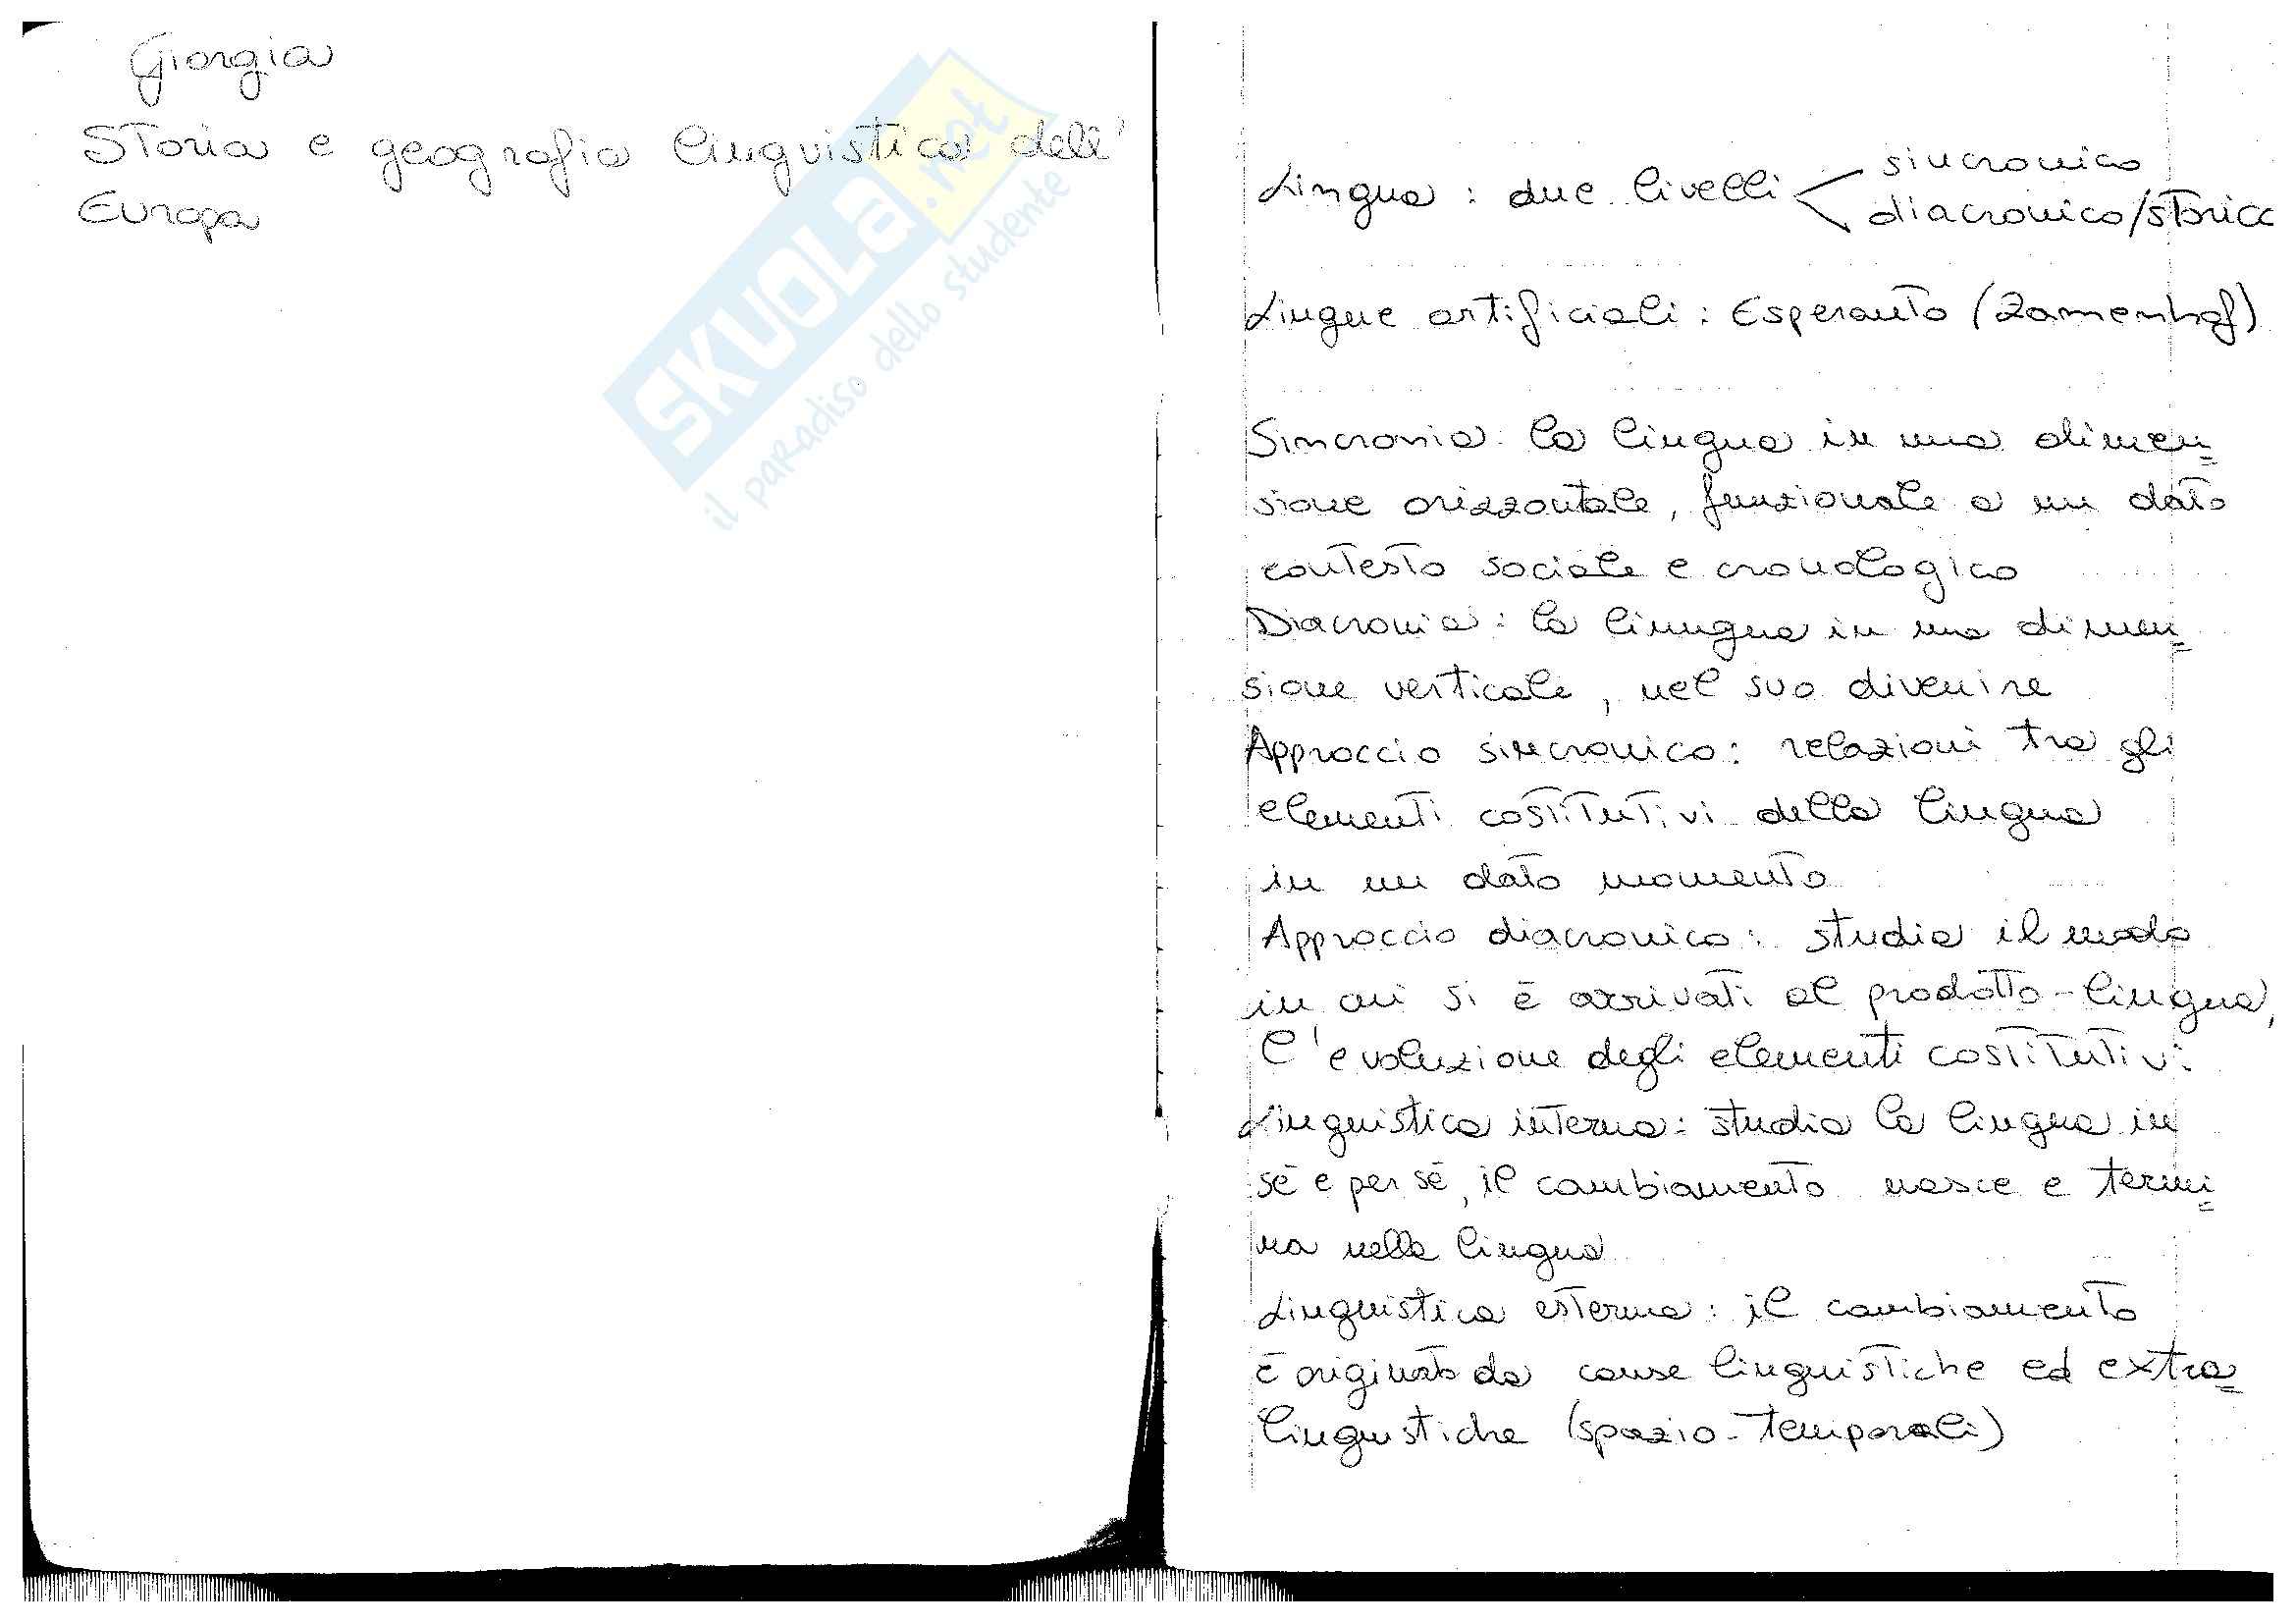 Giorgia
Storia e geografia linguistica dell'
Europa
SKUOLA.net
il paradiso dello studente
Lingua : due livelli
sincronico
diacronico/storico
Lingue artificiali : Esperanto (Zamenhof)
Sincronia: la lingua in una dimen=
sione orizzontale, funzionale a un dato
contesto sociale e cronologico
Diacronia: la linngua in una dimen=
sione verticale, nel suo divenire
Approccio sincronico: relazioni tra gli
elementi costitutivi della lingua
in un dato momento
Approccio diacronico: studia il modo
in cui si è arrivati al prodotto-lingua,
l'evoluzione degli elementi costitutivi.
Linguistica interna: studia la lingua in
sé e per sé, il cambiamento nasce e termi=
na nella lingua
Linguistica esterna: il cambiamento
è originato da cause linguistiche ed extra=
linguistiche (spazio-temporali)